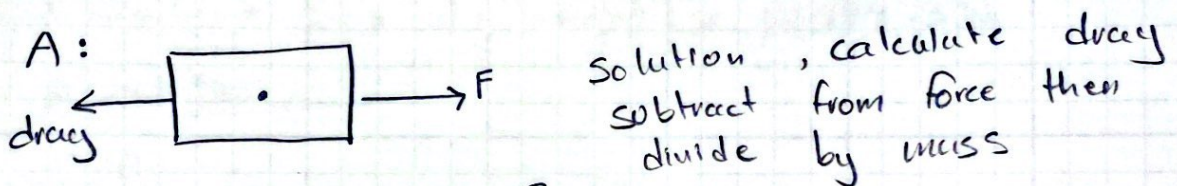 A:
drag
F
solution, calculate drag
subtract from force then
divide by mass